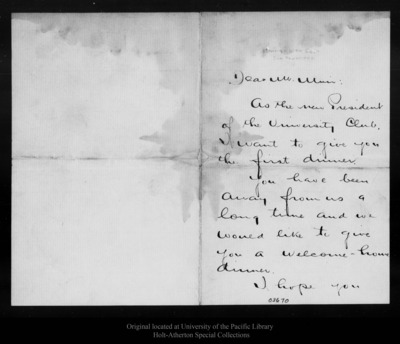 Dear Mr. Muir:
As the new President
of the University Club,
I want to give you
the first dinner.
You have been
away from us a
long time and we
would like to give
you a welcome-home
dinner.
I hope you
03670
Original located at University of the Pacific Library
Holt-Atherton Special Collections